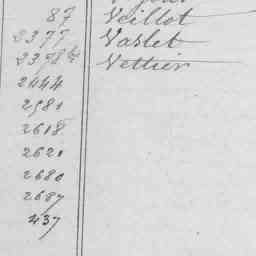 87 Veillot
2377 Vaslet
Vettier
2444
2581
2618
2621
2680
2687
437